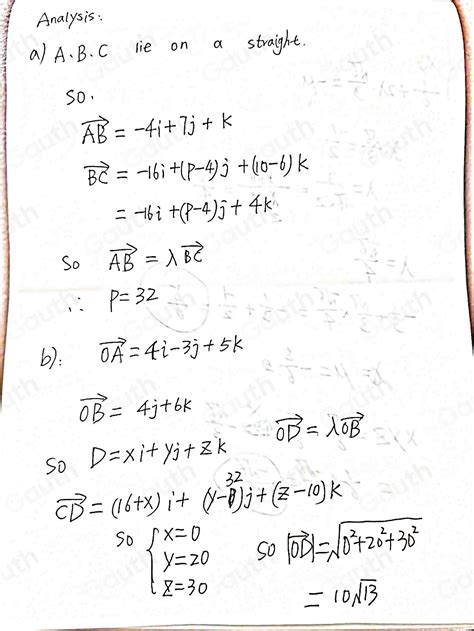 Analysis:
a) A.B.C lie on a straight.
so.
AB⃗ = -4i+7j+k
BC⃗ = -16i+(P-4)j+(10-6)k
= -16i+(P-4)j+4k
so AB⃗ = λBC⃗
∴ P=32
b): OA⃗ = 4i-3j+5k
OB⃗ = 4j+6k
so D=xi+yj+zk OD⃗ = λOB⃗
CD⃗ = (16+x)i+(y-32)j+(z-10)k
so { x=0
y=20
z=30
so |OD⃗|=√0²+20²+30²
= 10√13